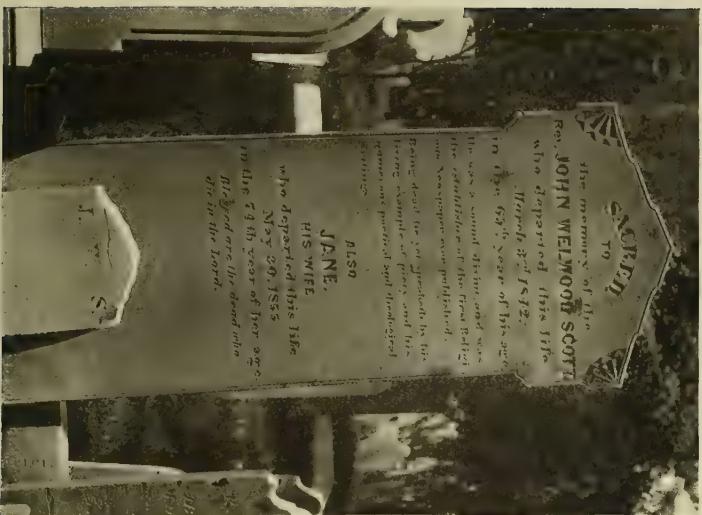 SACRED
TO
the memory of the
Rev. JOHN WELWOOD SCOTT
who departed this life
March 1842.
in the year of his age
He was a sound divine and was
the establisher of the first Religi
ous Newspaper ever published.
Being dead he yet speaketh by his
living example of piety and his
numerous poetical and theological
writings
ALSO
JANE,
HIS WIFE
who departed this life
20
in the 74th year of her age.
Blessed are the dead who
die in the Lord.
J. S.